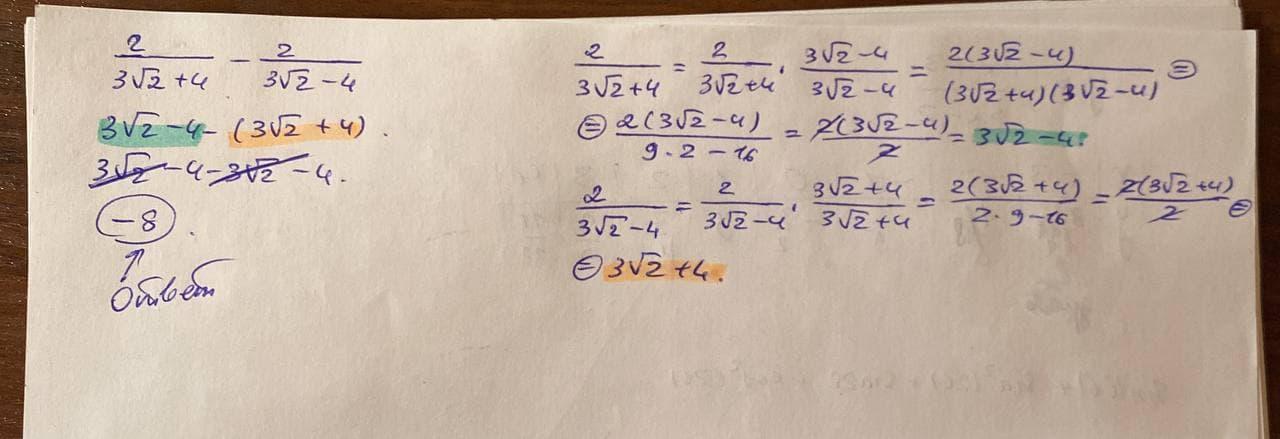 2/(3√2 + 4) − 2/(3√2 − 4)
3√2 − 4 − (3√2 + 4).
3√2 − 4 − 3√2 − 4.
−8.
↑
Ответ
2/(3√2 + 4) = 2/(3√2 + 4) · (3√2 − 4)/(3√2 − 4) = 2(3√2 − 4)/((3√2 + 4)(3√2 − 4)) ⊜
⊜ 2(3√2 − 4)/(9·2 − 16) = 2(3√2 − 4)/2 = 3√2 − 4.
2/(3√2 − 4) = 2/(3√2 − 4) · (3√2 + 4)/(3√2 + 4) = 2(3√2 + 4)/(2·9 − 16) = 2(3√2 + 4)/2 ⊜
⊜ 3√2 + 4.